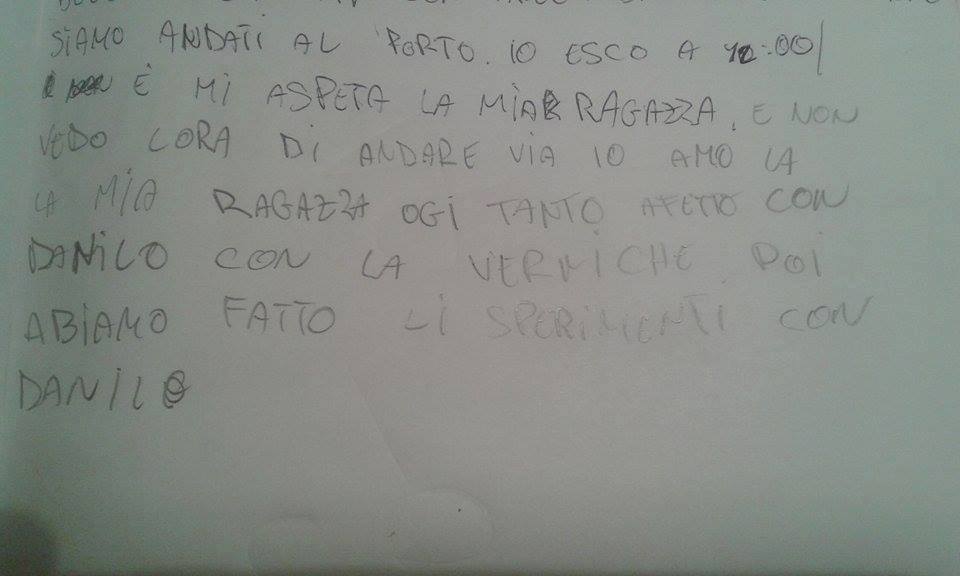 SIAMO ANDATI AL PORTO. IO ESCO A 12:00
E MI ASPETA LA MIA RAGAZZA, E NON
VEDO LORA DI ANDARE VIA IO AMO LA
LA MIA RAGAZZA OGI TANTO AFETTO CON
DANILO CON LA VERNICHE POI
ABIAMO FATTO LI SPERIMENTI CON
DANILO